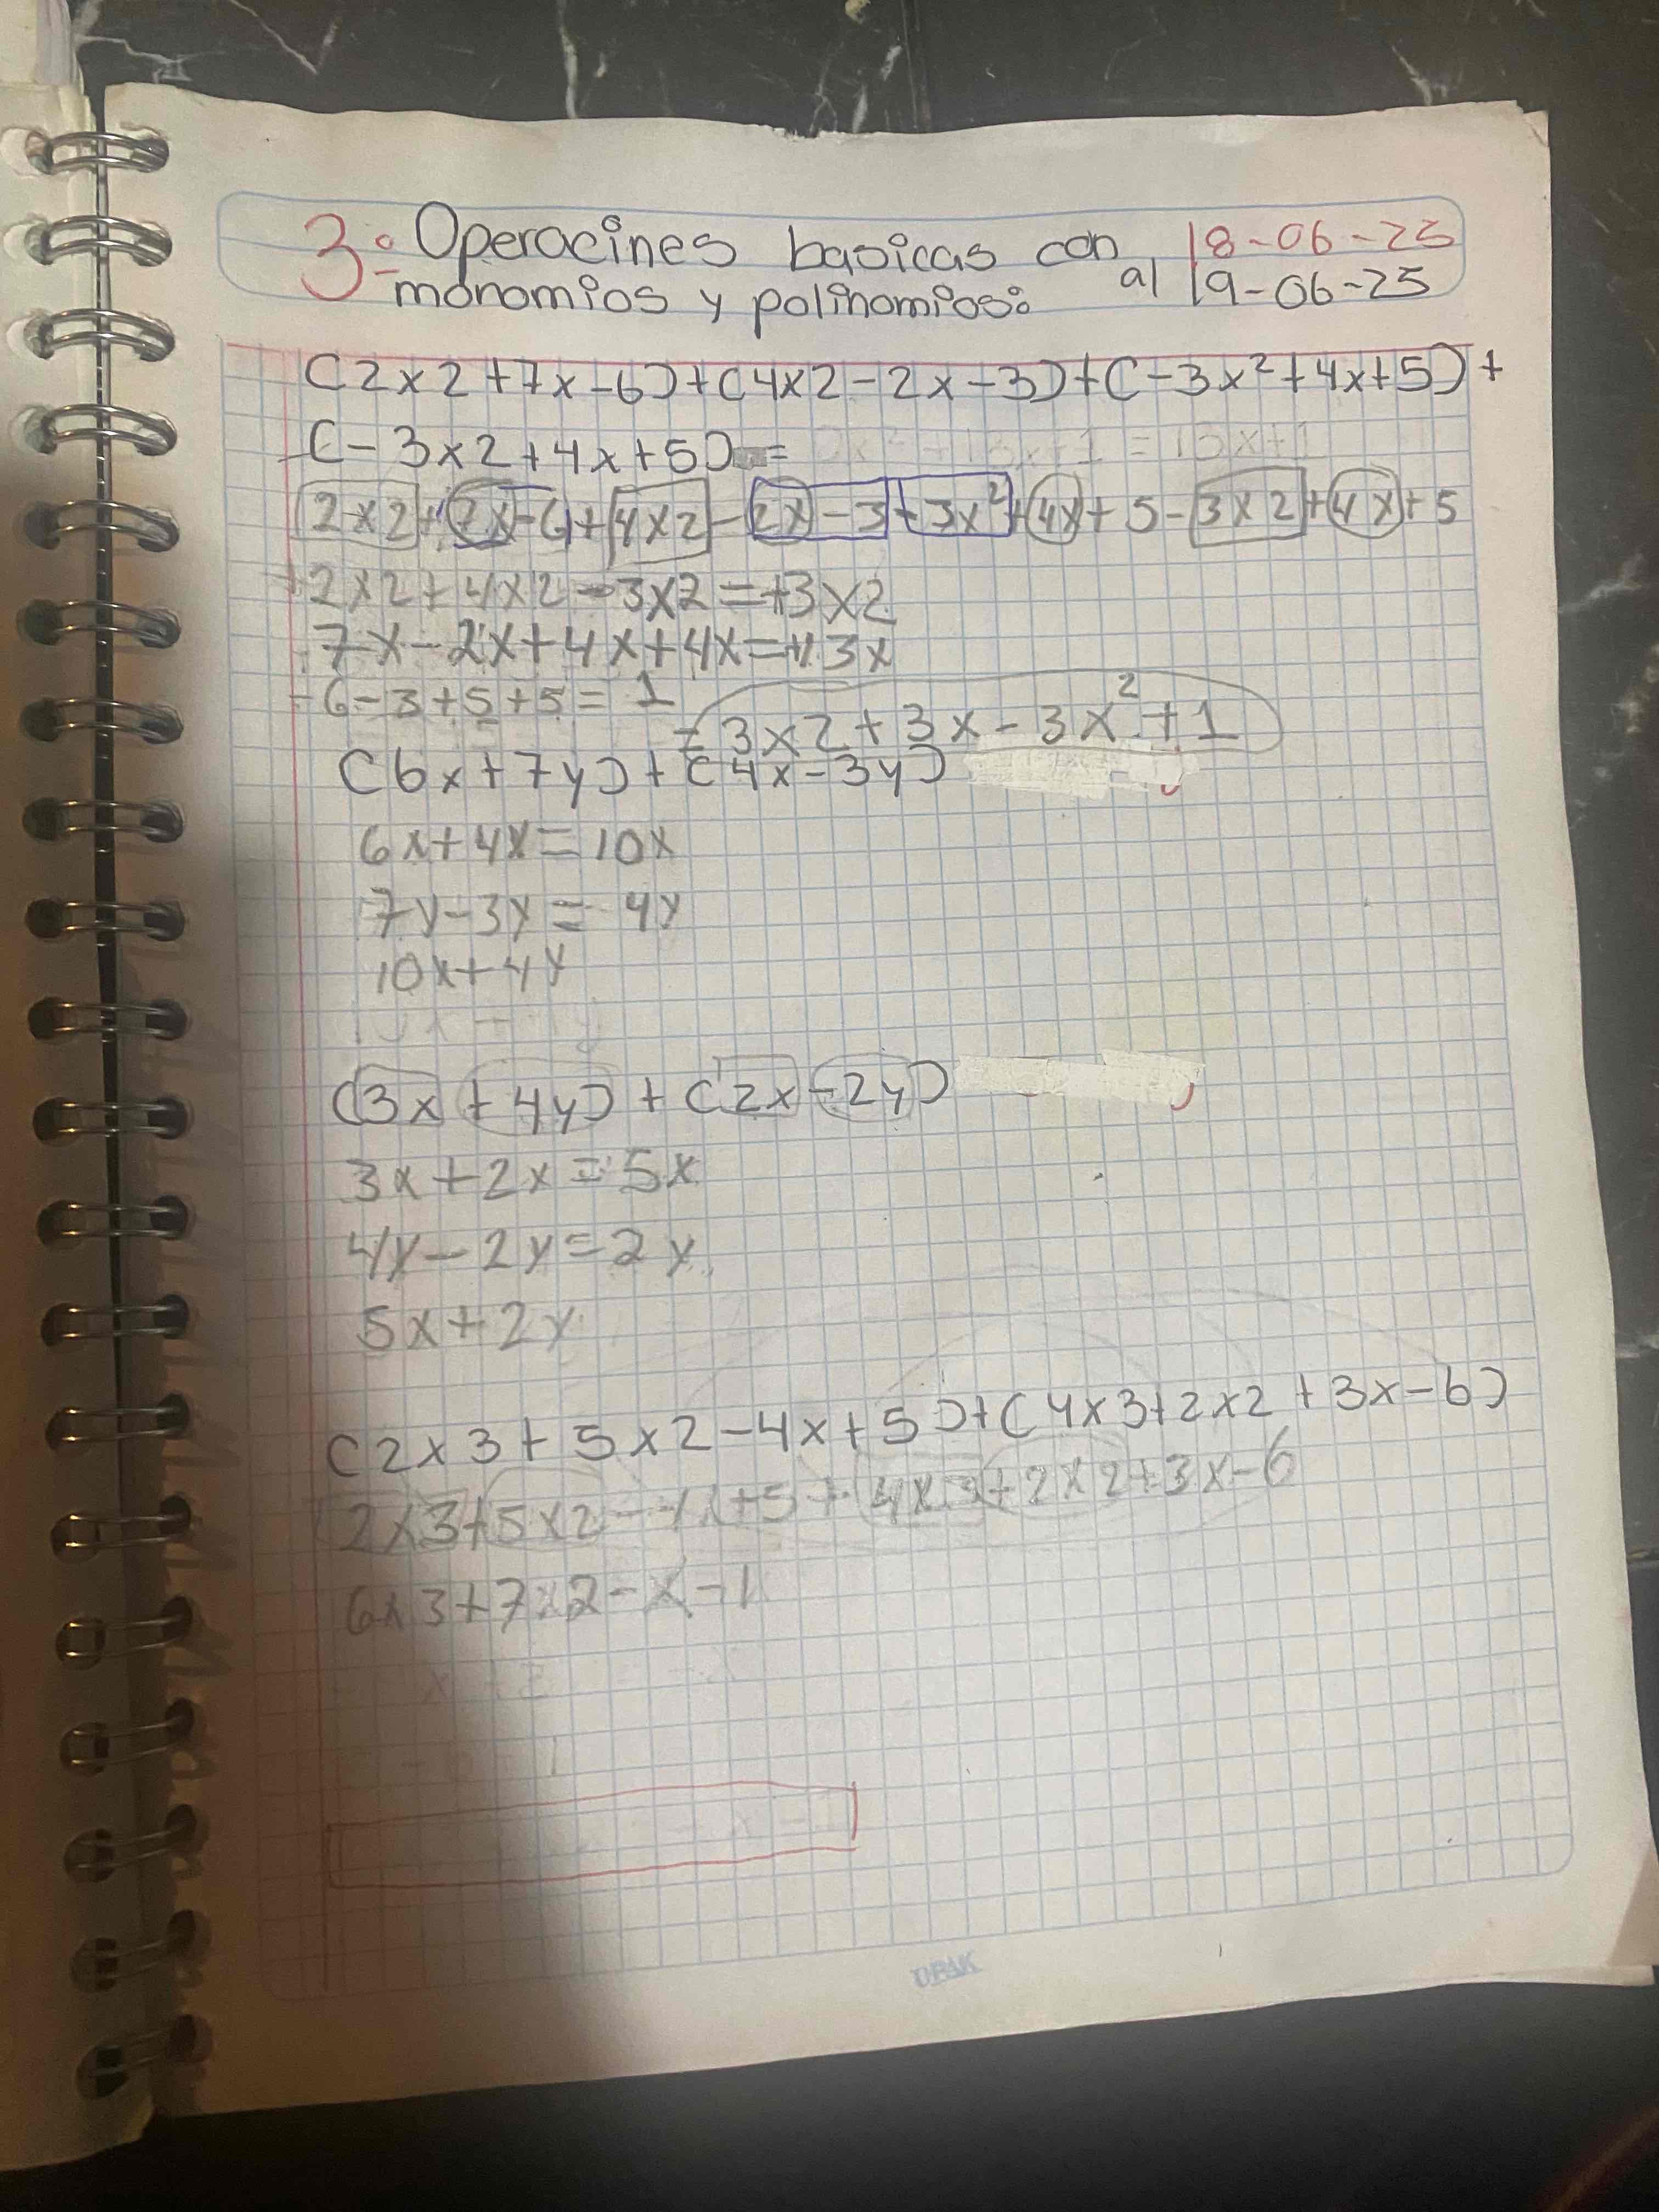 3:- Operacines basicas con 18-06-25
monomios y polinomios: al 19-06-25
(2x2+7x-6)+(4x2-2x-3)+(-3x²+4x+5)+
(-3x2+4x+5)= 0x²+13x+1=13x+1
2x2+7x-6+4x2-2x-3-3x²+4x+5-3x2+4x+5
+2x2+4x2-3x2=+3x2
7x-2x+4x+4x=+13x
-6-3+5+5=1
=3x2+3x-3x²+1
(6x+7y)+(4x-3y)
6x+4x=10x
7y-3y=4y
10x+4y
(3x+4y)+(2x-2y)
3x+2x=5x
4y-2y=2y
5x+2y
(2x3+5x2-4x+5)+(4x3+2x2+3x-6)
2x3+5x2-4x+5+4x3+2x2+3x-6
6x3+7x2-x-1